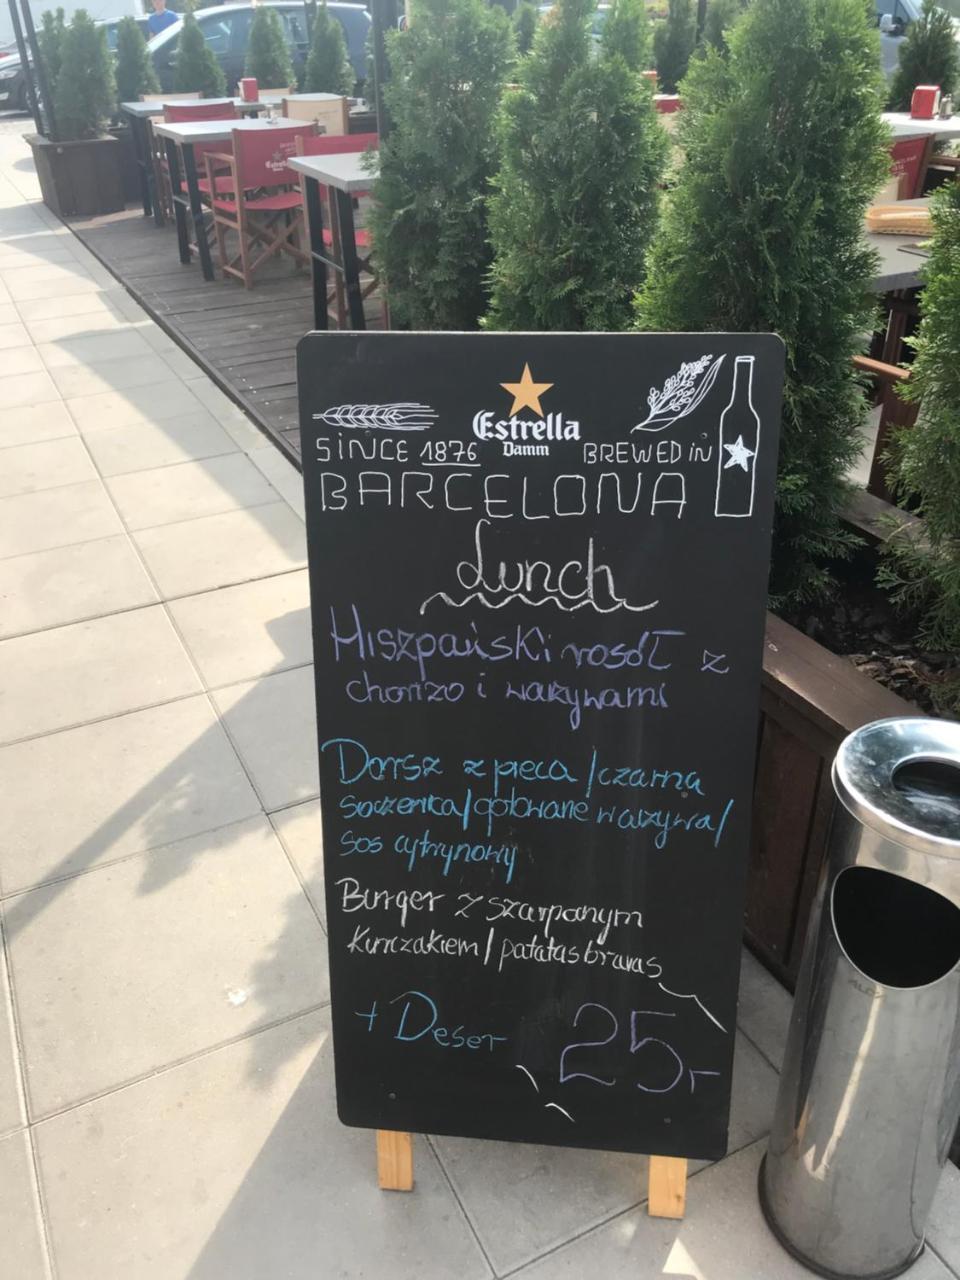 Estrella
Damm
SINCE 1876
BREWED IN
BARCELONA
Lunch
Hiszpański rosół z
chorizo i warzywami
Dorsz z pieca / czarna
soczewica / gotowane warzywa /
sos cytrynowy
Burger z szarpanym
kurczakiem / patatas bravas
+ Deser 25,-
Estrella